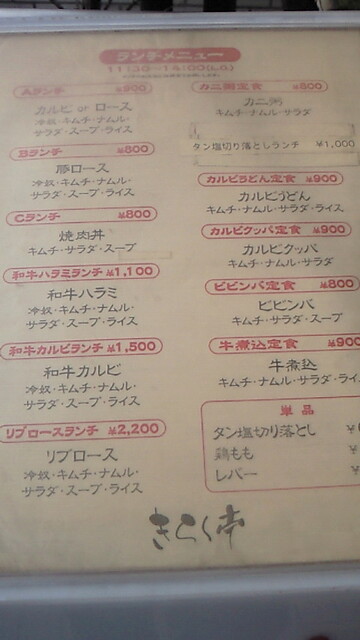 ランチメニュー
11:30~14:00(L.O)
Aランチ ¥800
カルビ or ロース
冷奴・キムチ・ナムル・
サラダ・スープ・ライス
Bランチ ¥800
豚ロース
冷奴・キムチ・ナムル・
サラダ・スープ・ライス
Cランチ ¥800
焼肉丼
キムチ・サラダ・スープ
和牛ハラミランチ ¥1,100
和牛ハラミ
冷奴・キムチ・ナムル・
サラダ・スープ・ライス
和牛カルビランチ ¥1,500
和牛カルビ
冷奴・キムチ・ナムル・
サラダ・スープ・ライス
リブロースランチ ¥2,200
リブロース
冷奴・キムチ・ナムル・
サラダ・スープ・ライス
カニ粥定食 ¥800
カニ粥
キムチ・ナムル・サラダ
タン塩切り落としランチ ¥1,000
カルビうどん定食 ¥900
カルビうどん
キムチ・ナムル・サラダ・ライス
カルビクッパ定食 ¥900
カルビクッパ
キムチ・ナムル・サラダ
ビビンバ定食 ¥800
ビビンバ
キムチ・サラダ・スープ
牛煮込定食 ¥900
牛煮込
キムチ・ナムル・サラダ・ライス
単品
タン塩切り落とし ¥
鶏もも ¥
レバー ¥
きらく亭